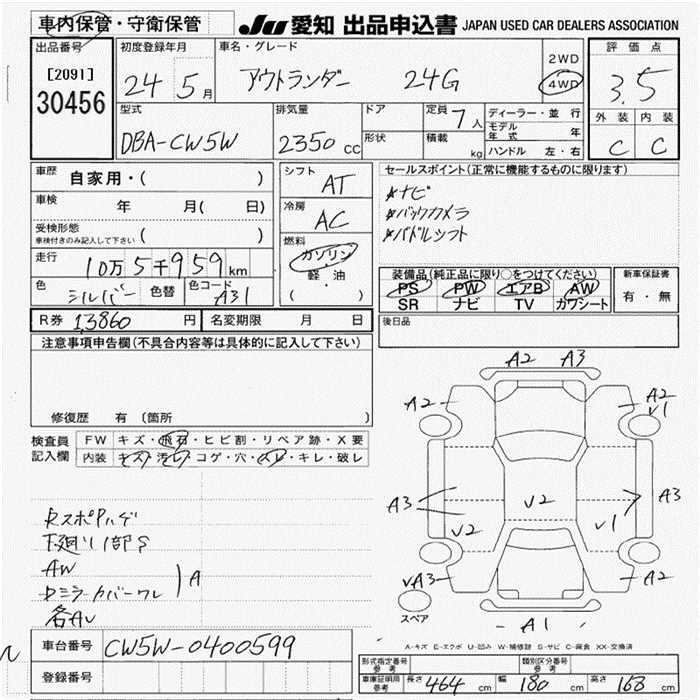 車内保管・守衛保管 JU 愛知 出品申込書 JAPAN USED CAR DEALERS ASSOCIATION
出品番号 [2091] 30456
初度登録年月 24 5月
車名・グレード アウトランダー 24G
2WD 4WD
評価点 3.5
外装 内装
C C
型式 DBA-CW5W
排気量 2350 cc
ドア 形状
定員 7人 積載 kg
ディーラー・並行
モデル年式 年
ハンドル 左・右
車歴 自家用・( )
車検 年 月( 日)
受検形態 車検付きのみ記入して下さい ( )
走行 10万5千959km
色 シルバー 色替 色コード A31
シフト AT
冷房 AC
燃料 ガソリン 軽・油 ( )
セールスポイント(正常に機能するものに限ります)
☆ナビ
☆バックカメラ
☆パドルシフト
装備品(純正品に限り○をつけてください)
PS PW エアB AW
SR ナビ TV カワシート
新車保証書 有・無
R券 13860円 名変期限 月 日
後日品
注意事項申告欄(不具合内容等は具体的に記入して下さい)
修復歴 有 〔箇所 〕
検査員記入欄
FW キズ・飛石・ヒビ割・リペア跡・X要
内装 キズ・汚れ・コゲ・穴・スレ・キレ・破レ
下廻り1部S
AW
A
各AU
A2 A3
A2 A2
V1
A3 A3
V2 V2 V1
VA3 A2
スペア
A1
A-キズ E-エクボ U-凹み W-補修跡 S-サビ C-腐食 XX-交換済
車台番号 CW5W-0400599
登録番号
形式指定番号 参考 類別区分番号 参考
車庫証明用参考 長さ 464 cm 幅 180 cm 高さ 168 cm